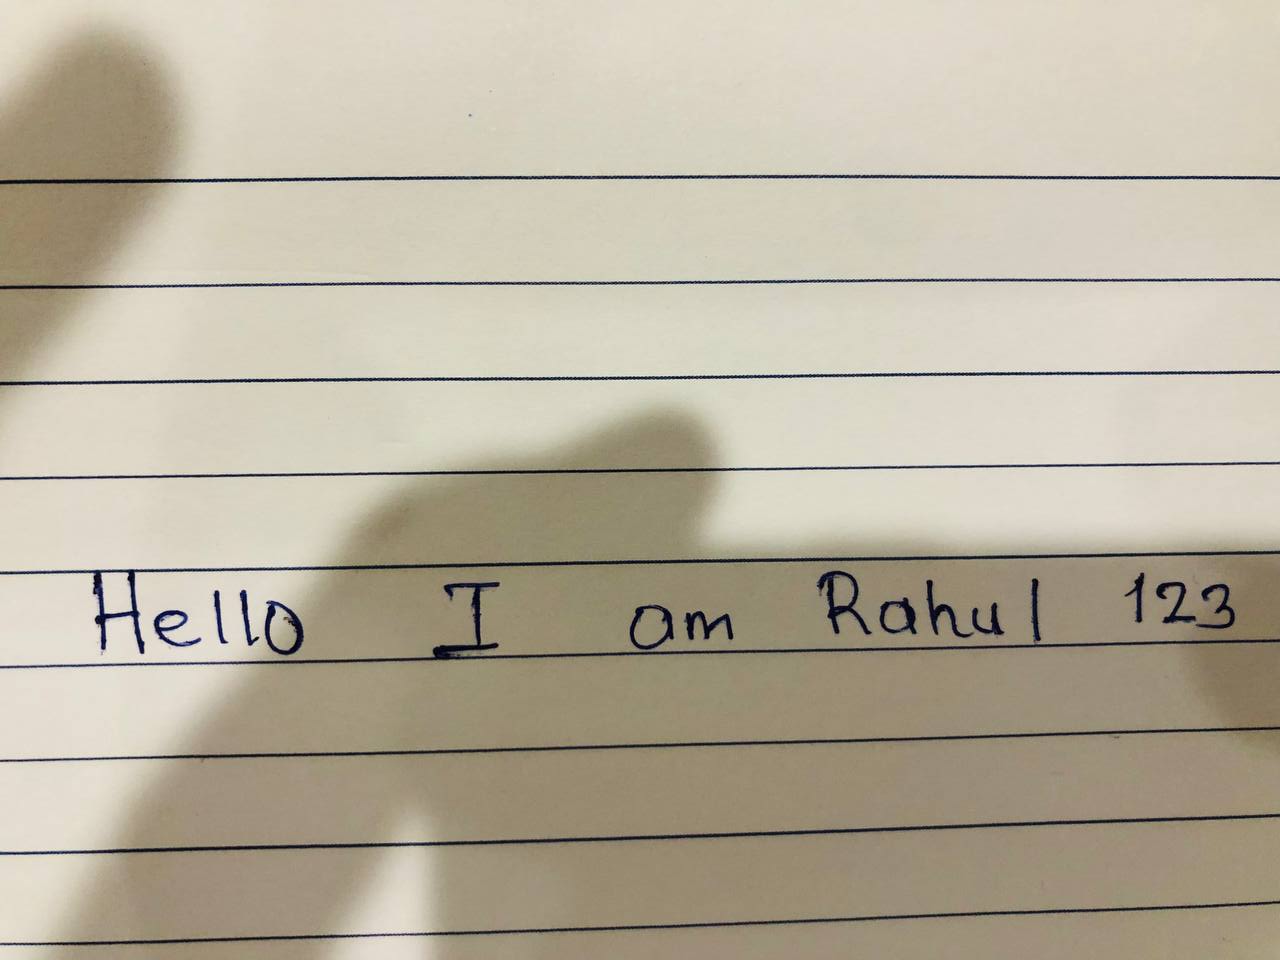 Hello I am Rahul 123